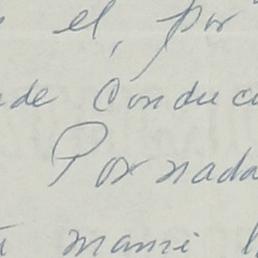 el, por
de conduc
Por nada
mami